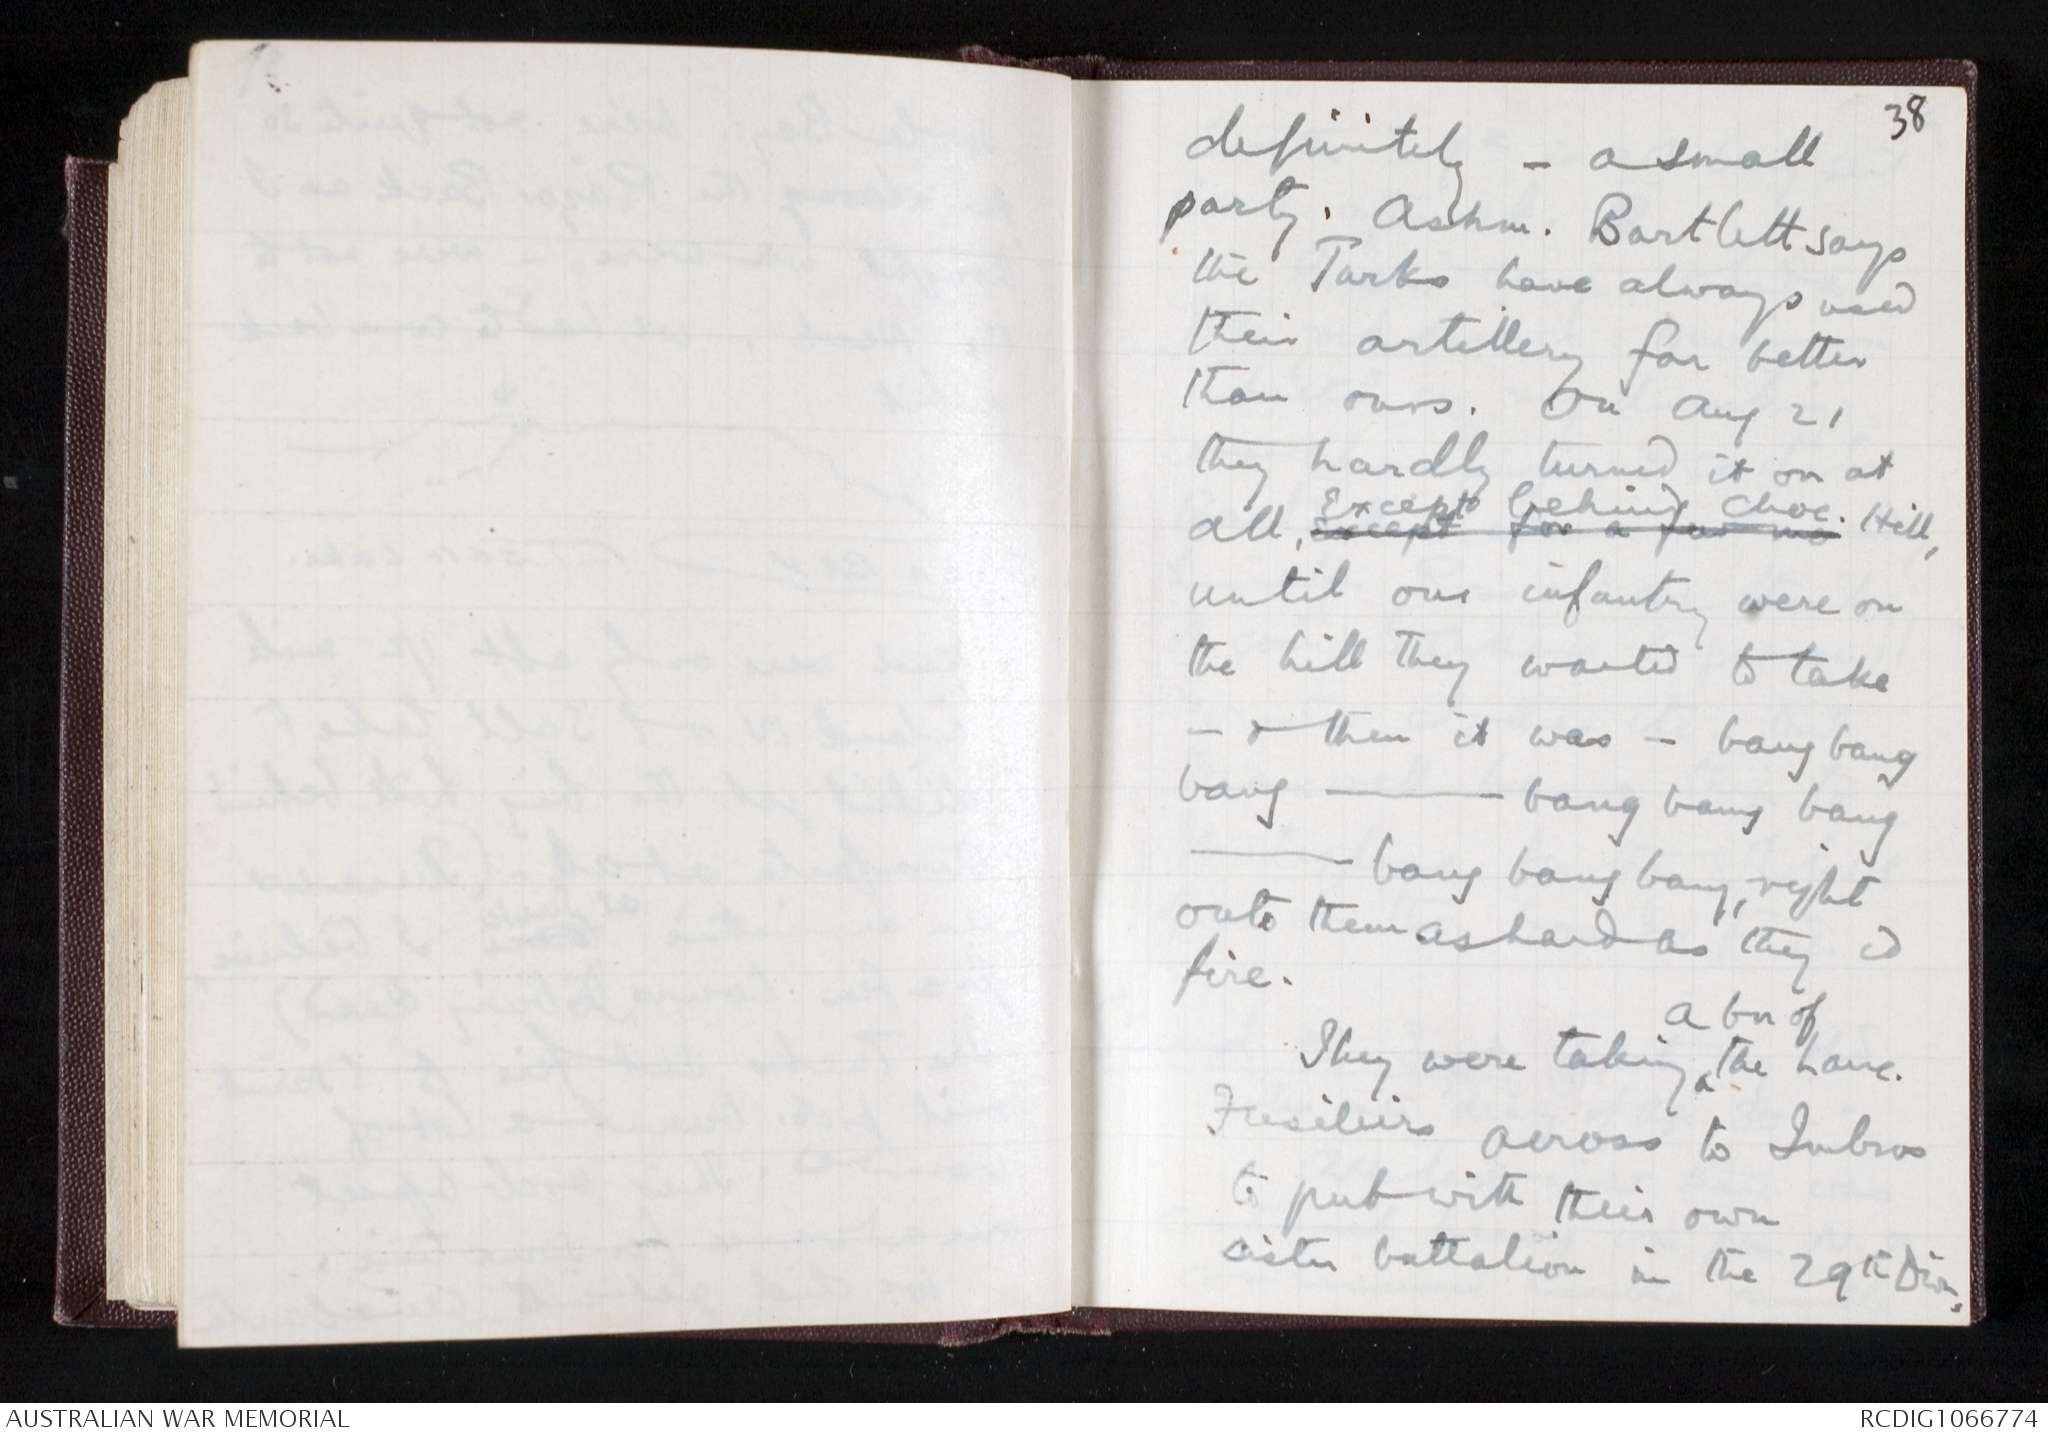 38
definitely – a small
party. Ashm. Bartlett says
the Turks have always used
their artillery far better
than ours. On Aug 21
they hardly turned it on at
Except behind Choc. Hill,
all, except for a few mo
until our infantry were on
the hill they wanted to take
– & then it was – bang bang
bang ——— bang bang bang
——— bang bang bang, right
onto them as hard as they cd
fire.
a bn of
They were taking ^ the Lanc.
Fusiliers across to Imbros
to put with their own
sister battalion in the 29th Divn,
AUSTRALIAN WAR MEMORIAL
RCDIG1066774